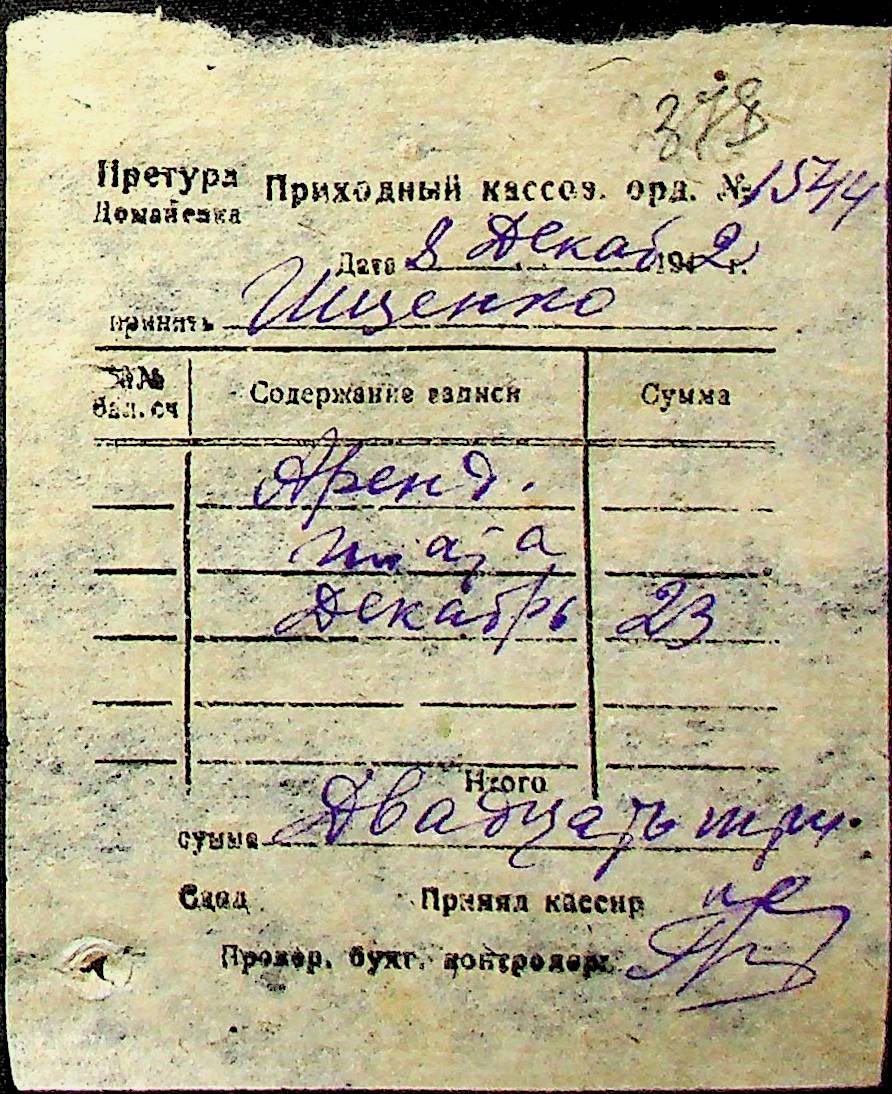 378
Претура Приходный кассов. орд. № 1544
Доманевка
Дата 8 Декаб 194 2 г.
принять Ищенко
№№ бал. сч Содержание записи Сумма
Аренд.
плата
Декабрь 23
Итого
сумма Двадцать три.
Сдал Принял кассир
Провер. бухг. контролер: